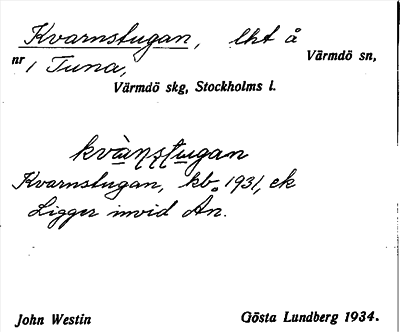 Kvarnstugan, lht å
Värmdö sn,
nr 1 Tuna,
Värmdö skg, Stockholms l.
kvànstugan
Kvarnstugan, kb. 1931, ek
Ligger invid An.
John Westin
Gösta Lundberg 1934.